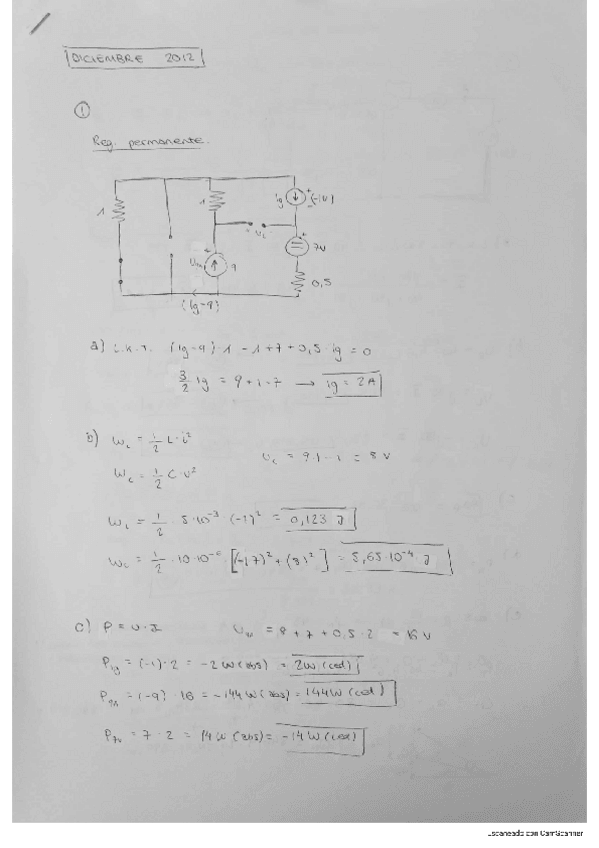 DICIEMBRE 2012
1
Reg. permanente.
1
1
ig
+
(-1V)
-
+ Uc -
+
7V
9
0,5
(ig-9)
a) L.K.T. (ig-9)·1 -1+7+0,5·ig=0
3/2 ig = 9+1-7 → ig = 2A
b) WL = 1/2 L·i²
Uc = 9·1-1 = 8 V
Wc = 1/2 C·U²
= 1/2 · 5·10⁻³ · = 0,123 J
Wc = 1/2 · 10·10⁻⁶ · [(-17)²+(8)²] = 5,65·10⁻⁴ J
c) P = U·I
= 9+7+0,5·2 = 16 V
Pig = (-1)·2 = -2W(abs) = 2W(ced)
= (-9)·16 = -144W(abs) = 144W(ced)
P7V = 7·2 = 14W(abs) = -14W(ced)
Escaneado con CamScanner